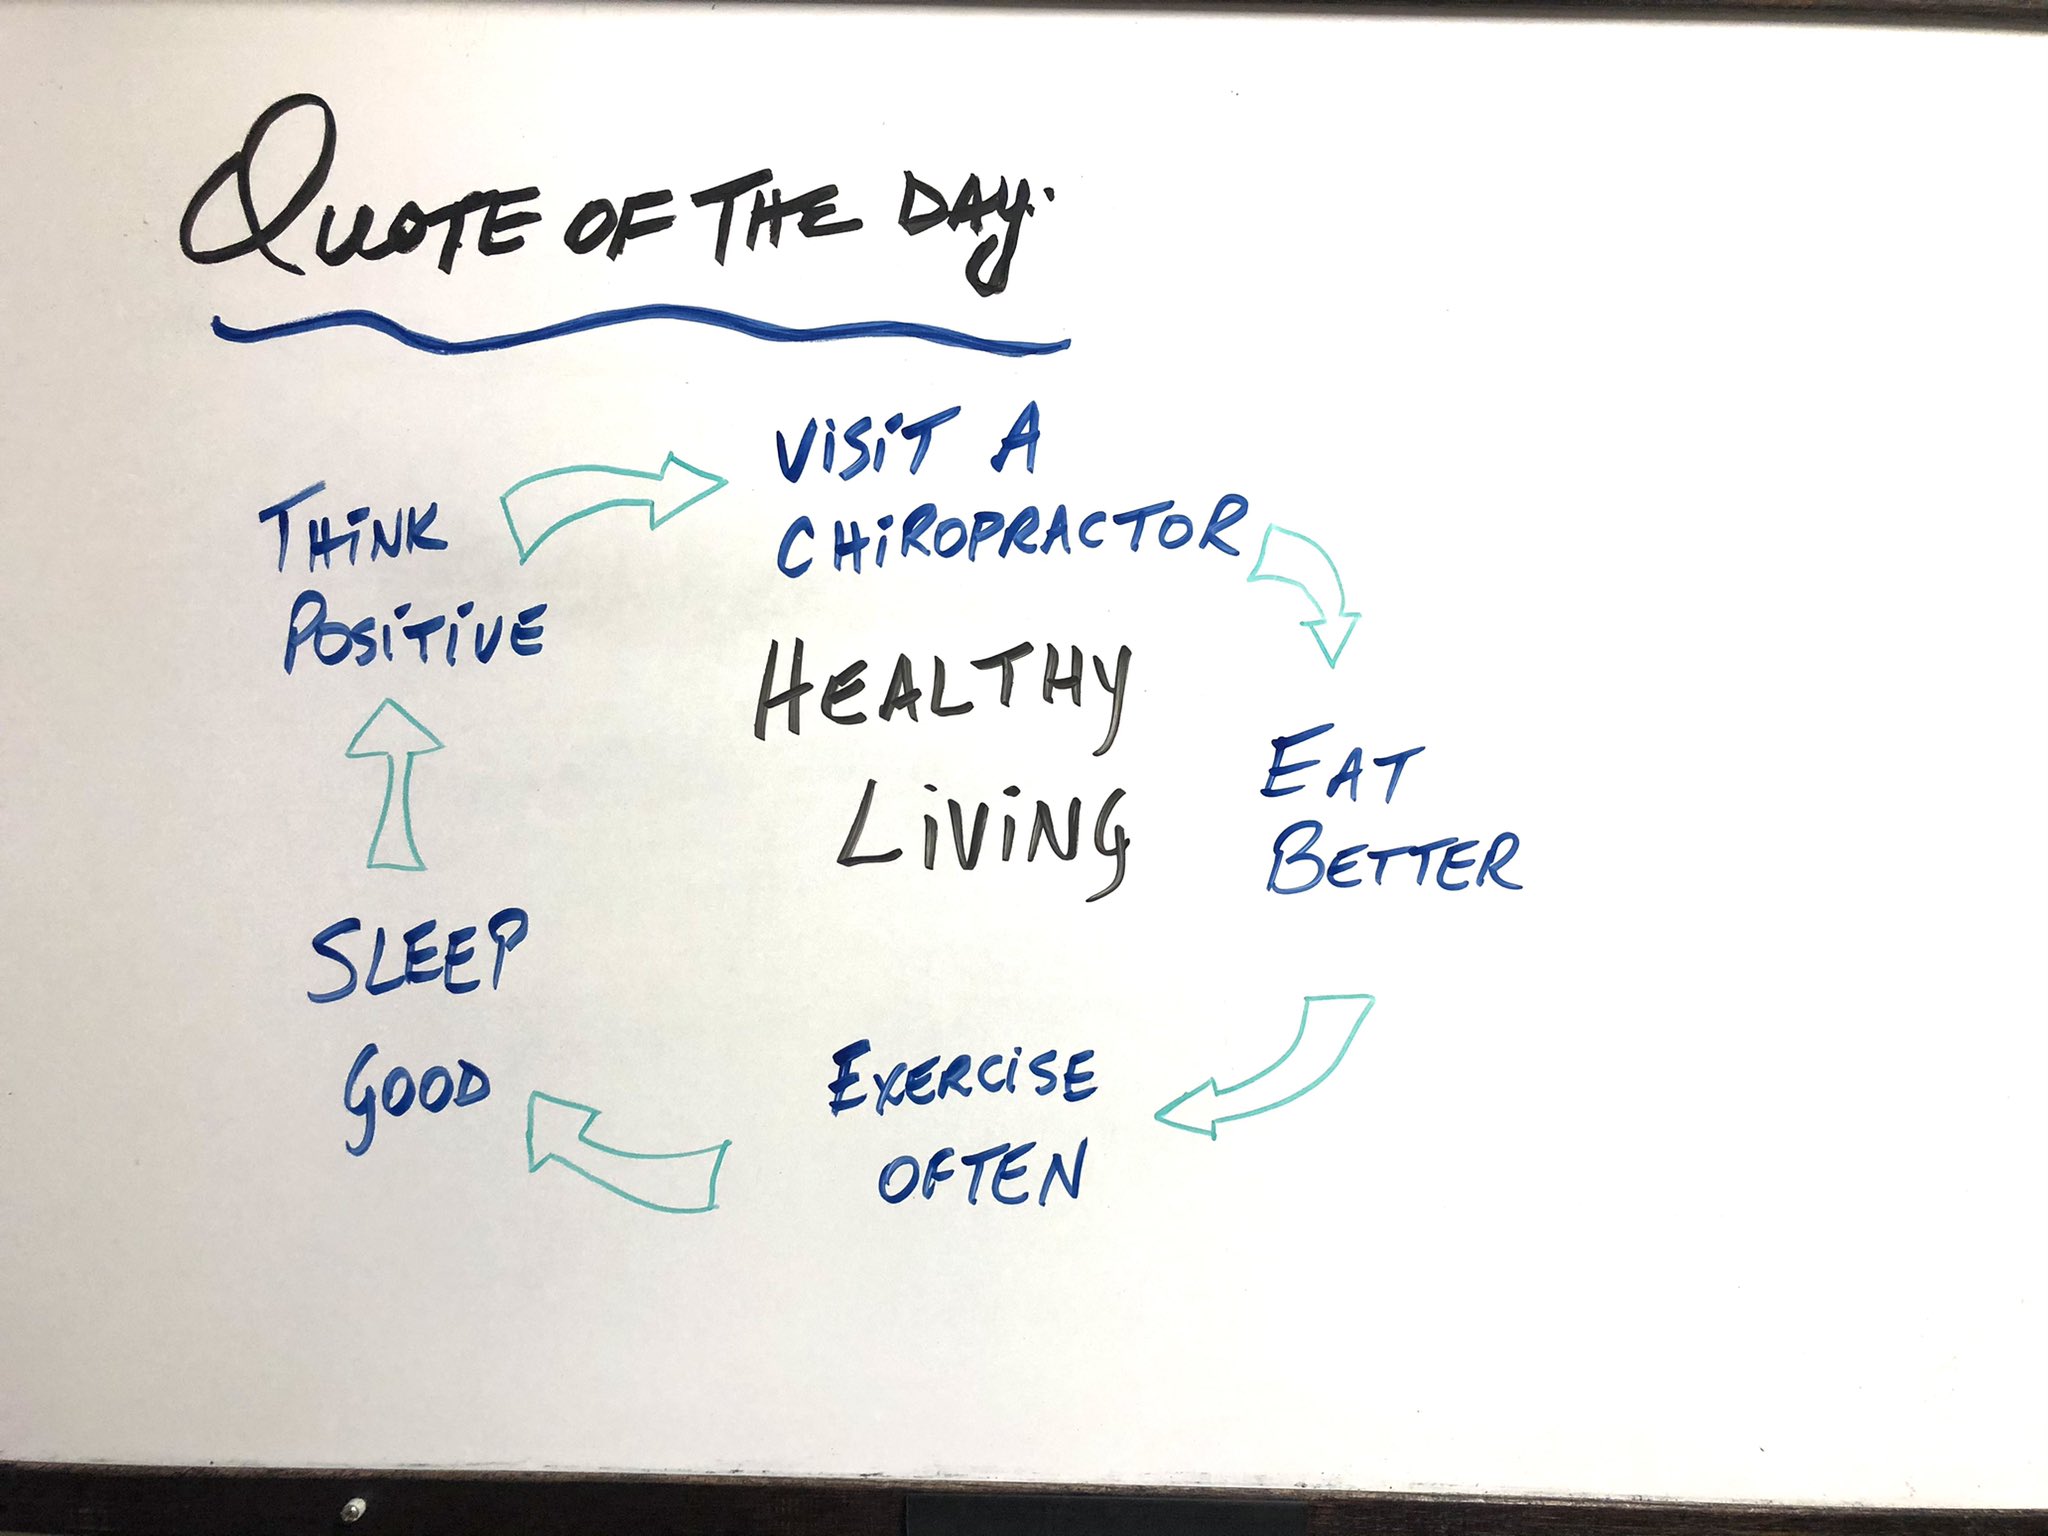 QUOTE OF THE DAY.
VISIT A
CHIROPRACTOR
THINK
POSITIVE
HEALTHY
LIVING
EAT
BETTER
SLEEP
GOOD
EXERCISE
OFTEN